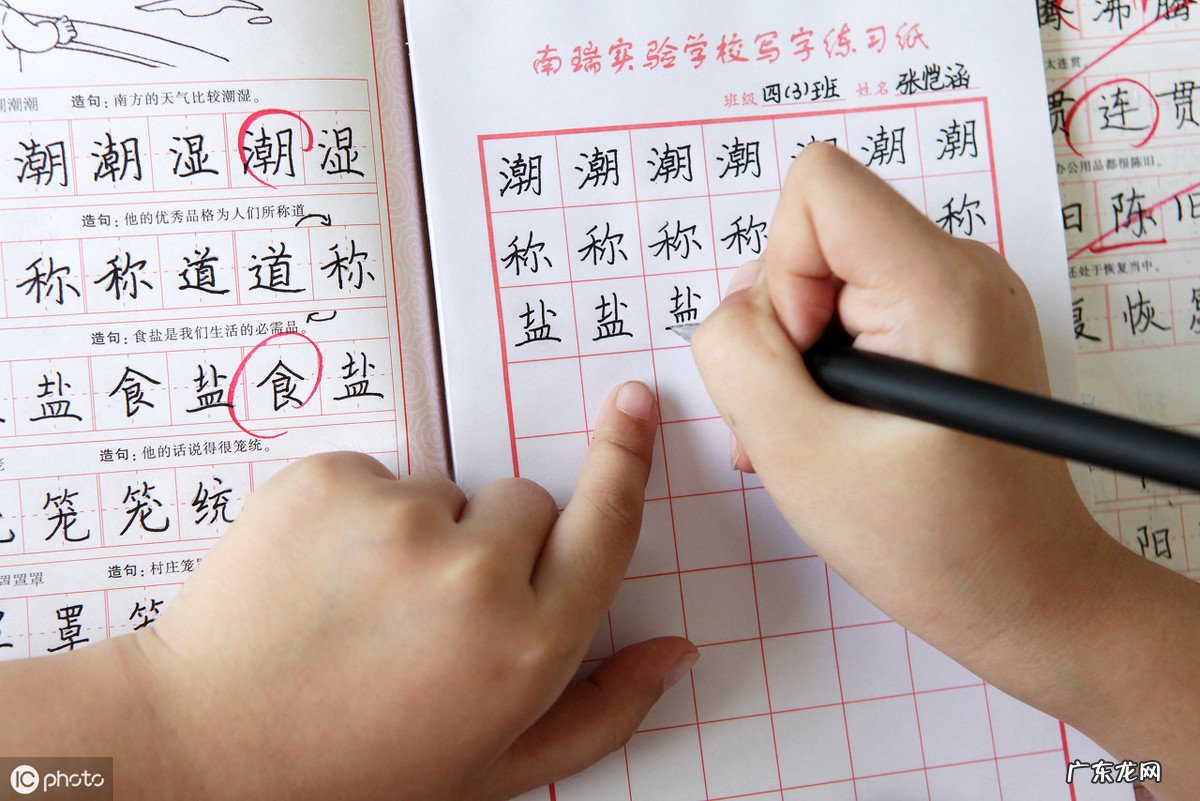 潮潮 造句：南方的天气比较潮湿。
潮 潮 湿 潮 湿
造句：他的优秀品格为人们所称道
称 称 道 道 称
造句：食盐是我们生活的必需品。
盐 食 盐 食 盐
造句：他的话说得很笼统。
笼 笼 统
罩罩 造句：村庄笼
罩
南瑞实验学校写字练习纸
班级 四(3)班 姓名 张恺涵
潮 潮 潮 潮 潮 潮 潮
称 称 称 称 称
盐 盐 盐
沸 腾
太连贯
贯 连 贯
办公用品都很陈旧。
旧 陈 旧
还处于恢复当中。
复 恢
阳
IC photo
广东龙网